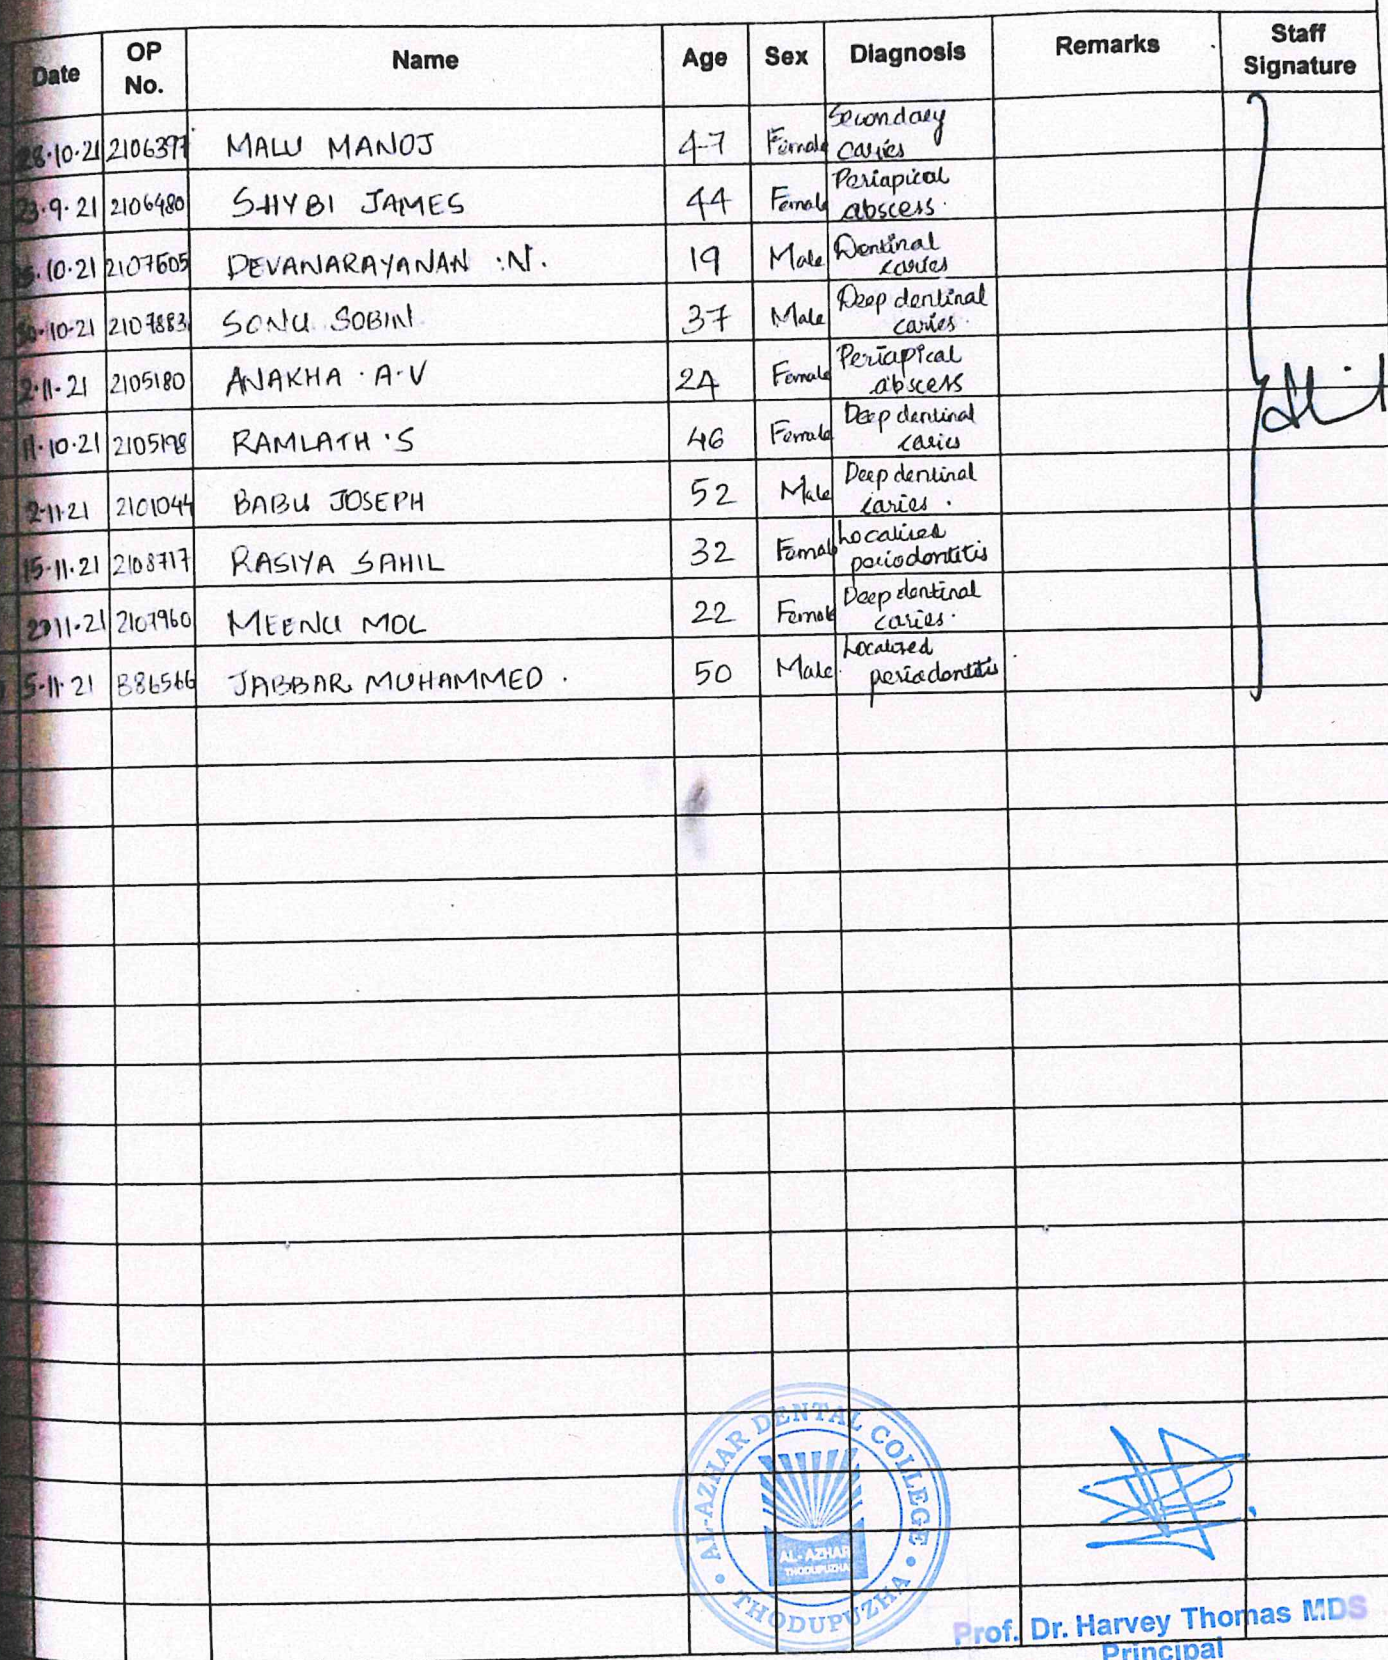 Date OP No. Name Age Sex Diagnosis Remarks Staff Signature
28.10.21 2106397 MALU MANOJ 47 Female Secondary caries
23.9.21 2106480 SHYBI JAMES 44 Female Periapical abscess.
.10.21 2107605 DEVANARAYANAN .N. 19 Male Dentinal caries
.10.21 2107883 SONU SOBIN 37 Male Deep dentinal caries.
2.11.21 2105180 ANAKHA . A.V 24 Female Periapical abscess
11.10.21 RAMLATH .S 46 Female Deep dentinal caries
2.11.21 2101044 BABU JOSEPH 52 Male Deep dentinal caries.
15.11.21 2108717 RASIYA SAHIL 32 Female Localised periodontitis
11.21 2107960 MEENU MOL 22 Female Deep dentinal caries.
5.11.21 B86566 JABBAR MUHAMMED. 50 Male. Localized periodontitis
AL-AZHAR DENTAL COLLEGE • THODUPUZHA •
AL-AZHAR
THODUPUZHA
Prof. Dr. Harvey Thomas MDS
Principal